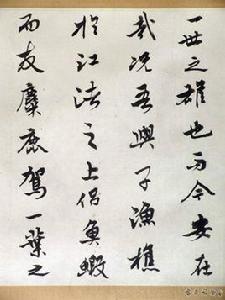 一世之雄也而今安在
哉况吾與子漁樵
於江渚之上侣魚蝦
而友麋鹿駕一葉之